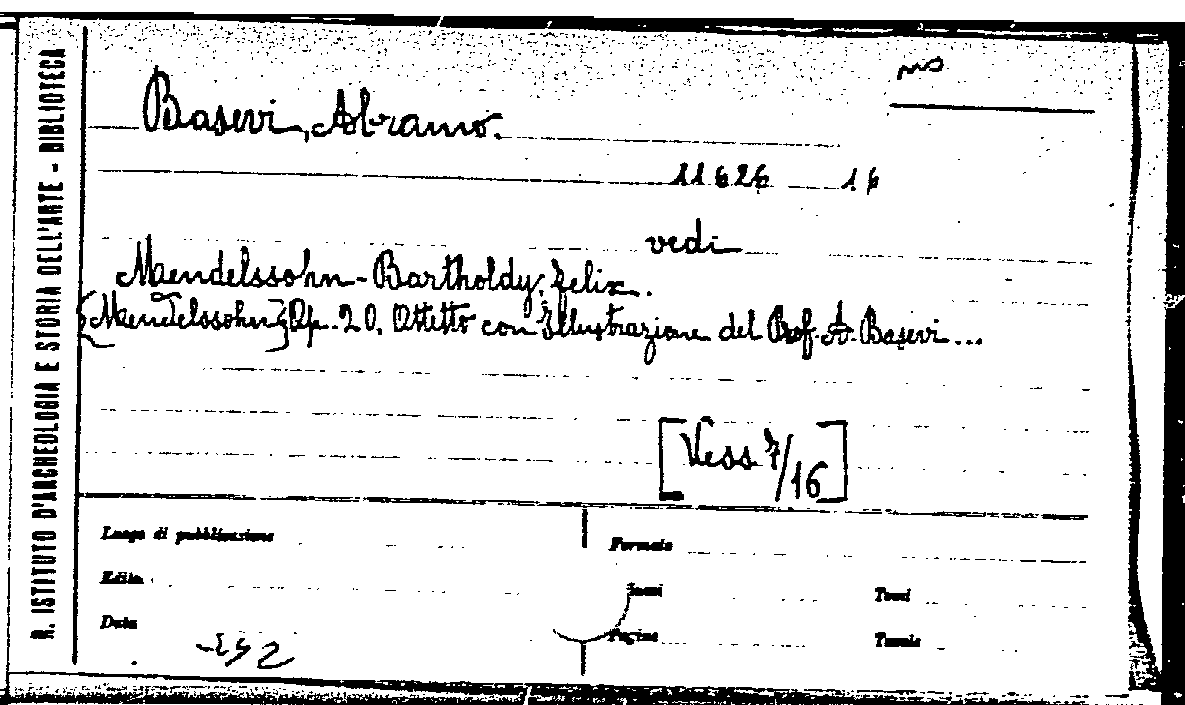 R. ISTITUTO D'ARCHEOLOGIA E STORIA DELL'ARTE - BIBLIOTECA
Basevi, Abramo.
11626 16
vedi
Mendelssohn-Bartholdy, Felix.
[Mendelssohn] Op. 20. Ottetto con Illustrazione del Prof. A. Basevi...
[Vess 7/16]
Luogo di pubblicazione
Formato
Editore
Tomi
Data
Pagine
Tavole